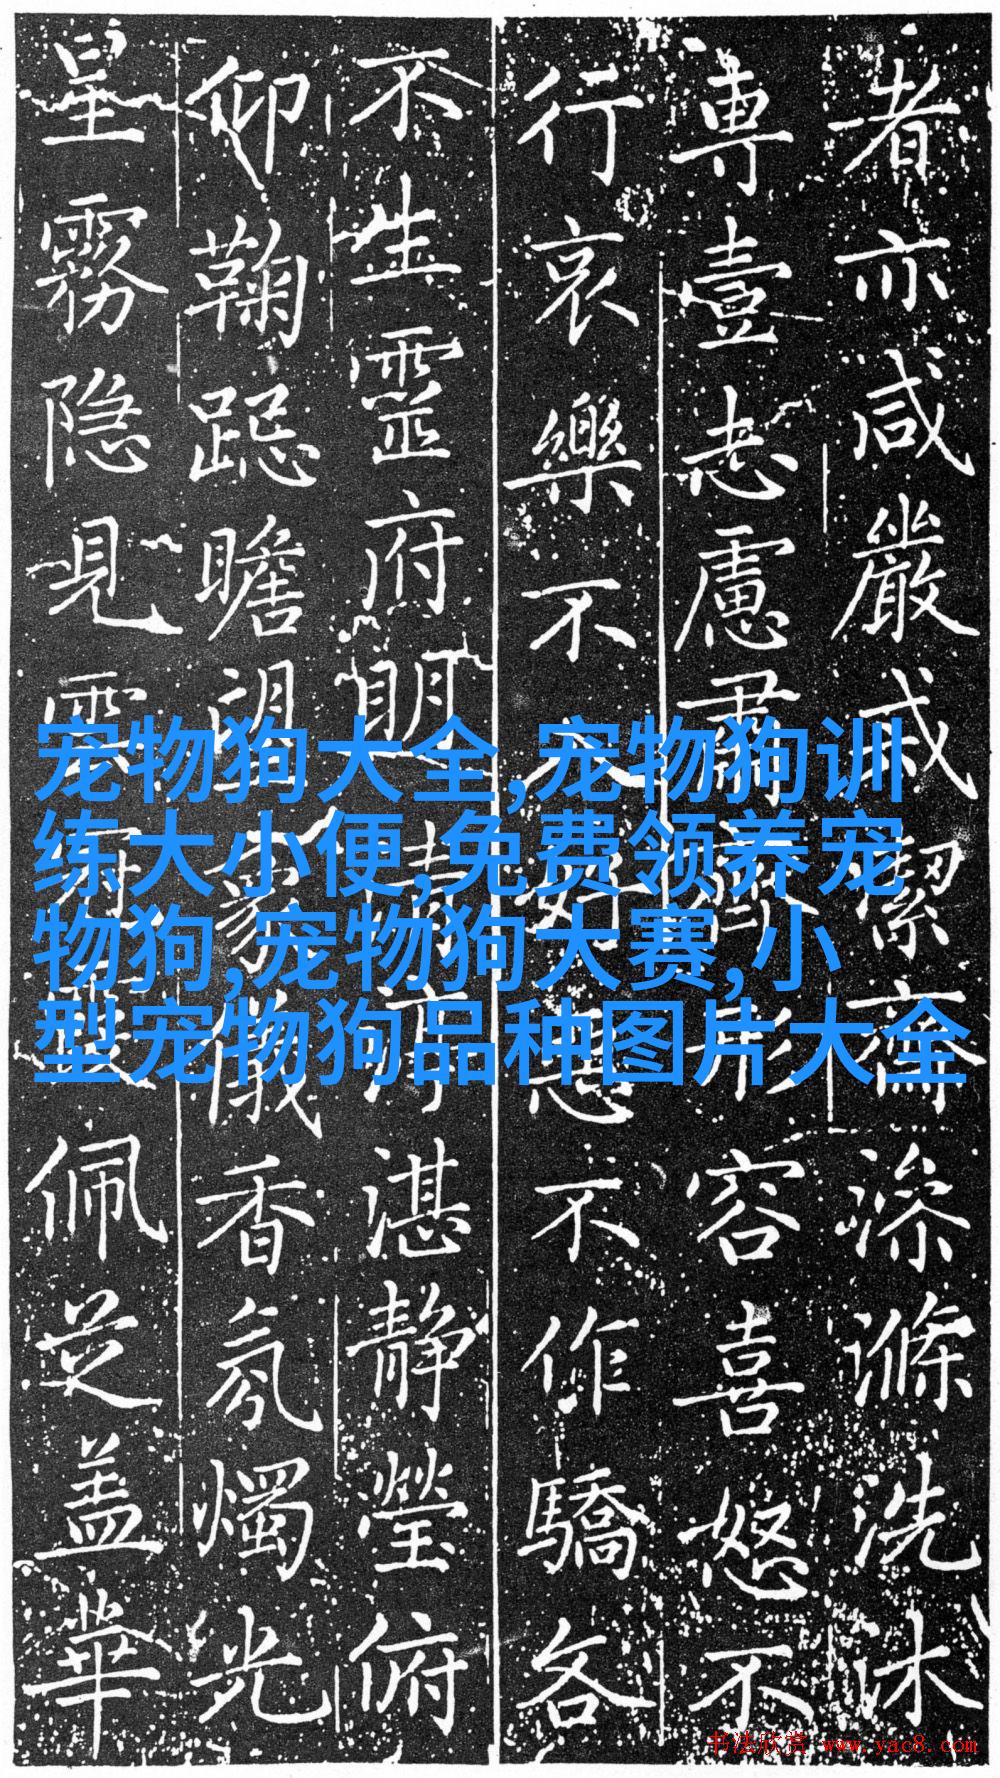 者亦咸嚴戒絜齋澡滌洗沐
專壹志慮肅形容喜怒不
行哀樂不好惡不作驕各
不生靈府明湛静瑩俯
仰鞠跽瞻望儀香氛燭光
星霧隐見雲佩芝盖華
宠物狗大全,宠物狗训
练大小便,免费领养宠
物狗,宠物狗大赛,小
型宠物狗品种图片大全
书法欣赏 www.yac8.com